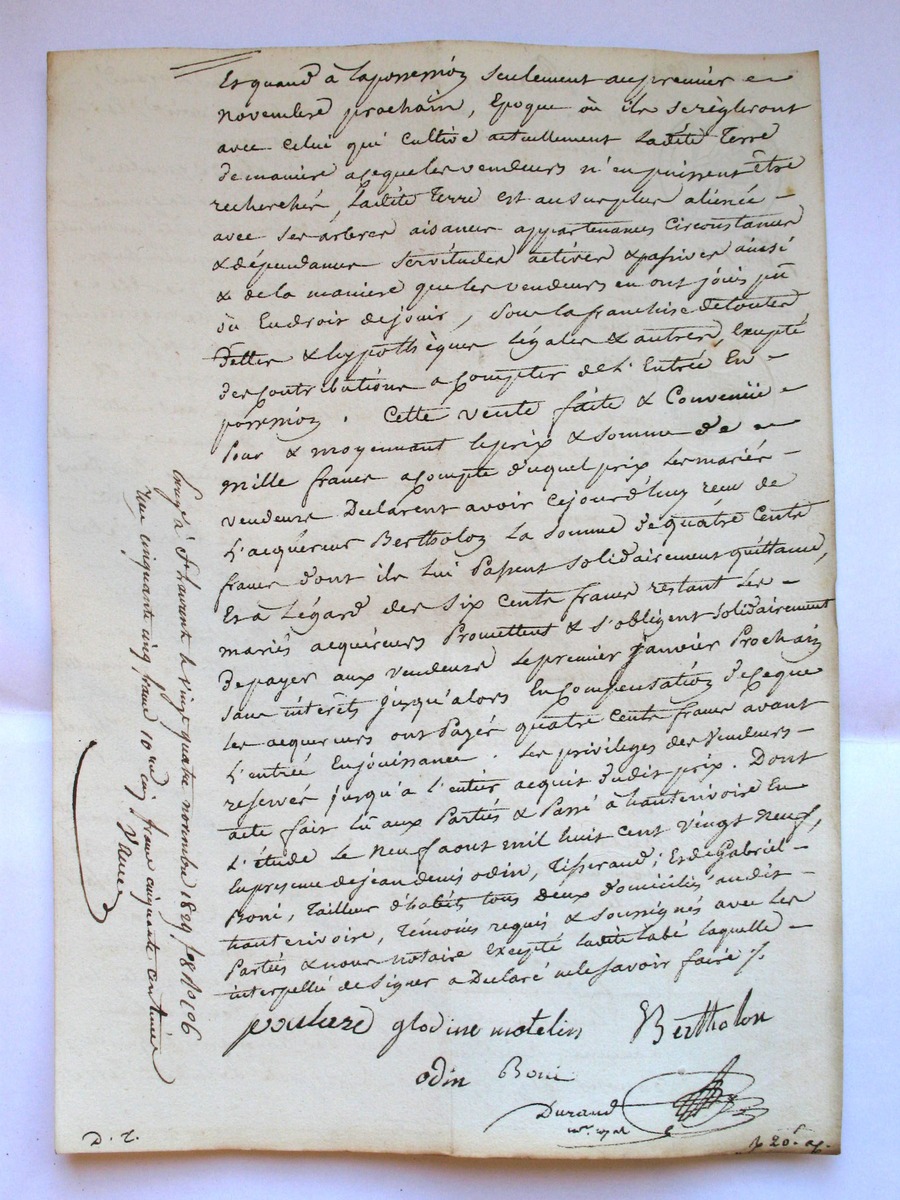 Et quand à la possession seulement au premier
novembre prochain, Epoque où ils se règleront
avec celui qui cultive actuellement Ladite Terre
de manière a ceque les vendeurs n'en puissent être
recherché, Ladite Terre est au surplus aliénée
avec ses arbres aisances appartenances Circonstances
& dépendances servitudes actives & passives ainsi
& de la maniere que les vendeurs en ont jöuis pû
öu Eu droit de jouir, sous la franchise de toutes
Dettes & hypothèques légales & autres, Excepté
des contributions a compter de l'Entrée En
possession. Cette vente faite & Convenüe
Pour & moyennant le prix & somme de
mille francs acompte duquel prix Les mariés
vendeurs Declarent avoir cejourd'huy reçu de
L'acquereur Bertholon La somme de quatre Cents
francs dont ils Lui Passent solidairement quittance,
Et à Légard des six cents francs restant Les
mariés acquéreurs Promettent & s'obligent solidairement
de payer aux vendeurs Le premier janvier Prochain
sans intérêts jusqu'alors En compensation de ce que
Les acquereurs ont Payés quatre cents francs avant
L'entrée En jouissance. Les privileges des vendeurs
reservés jusqu'a l'entier acquit dudit prix. Dont
acte fait Lû aux Parties & Passé à hauterivoire En
L'étude Le neuf aout mil huit cent vingt neuf,
En presence de jean denis odin, Tisserand; Et de Gabriel
Boni, Tailleur d'habits tous deux domiciliés audit
hauterivoire, Témoins requis & soussignés avec Les
Parties & nous notaire Excepté Ladite Labé laquelle
interpellée de signer a Declaré ne le savoir faire /.
poulard glodine motelin Bertholon
odin Boni
Durand
D. T.
à st Laurent le vingt quatre novembre 1829,
cinquante cinq francs 10 cinq francs cinquante centimes